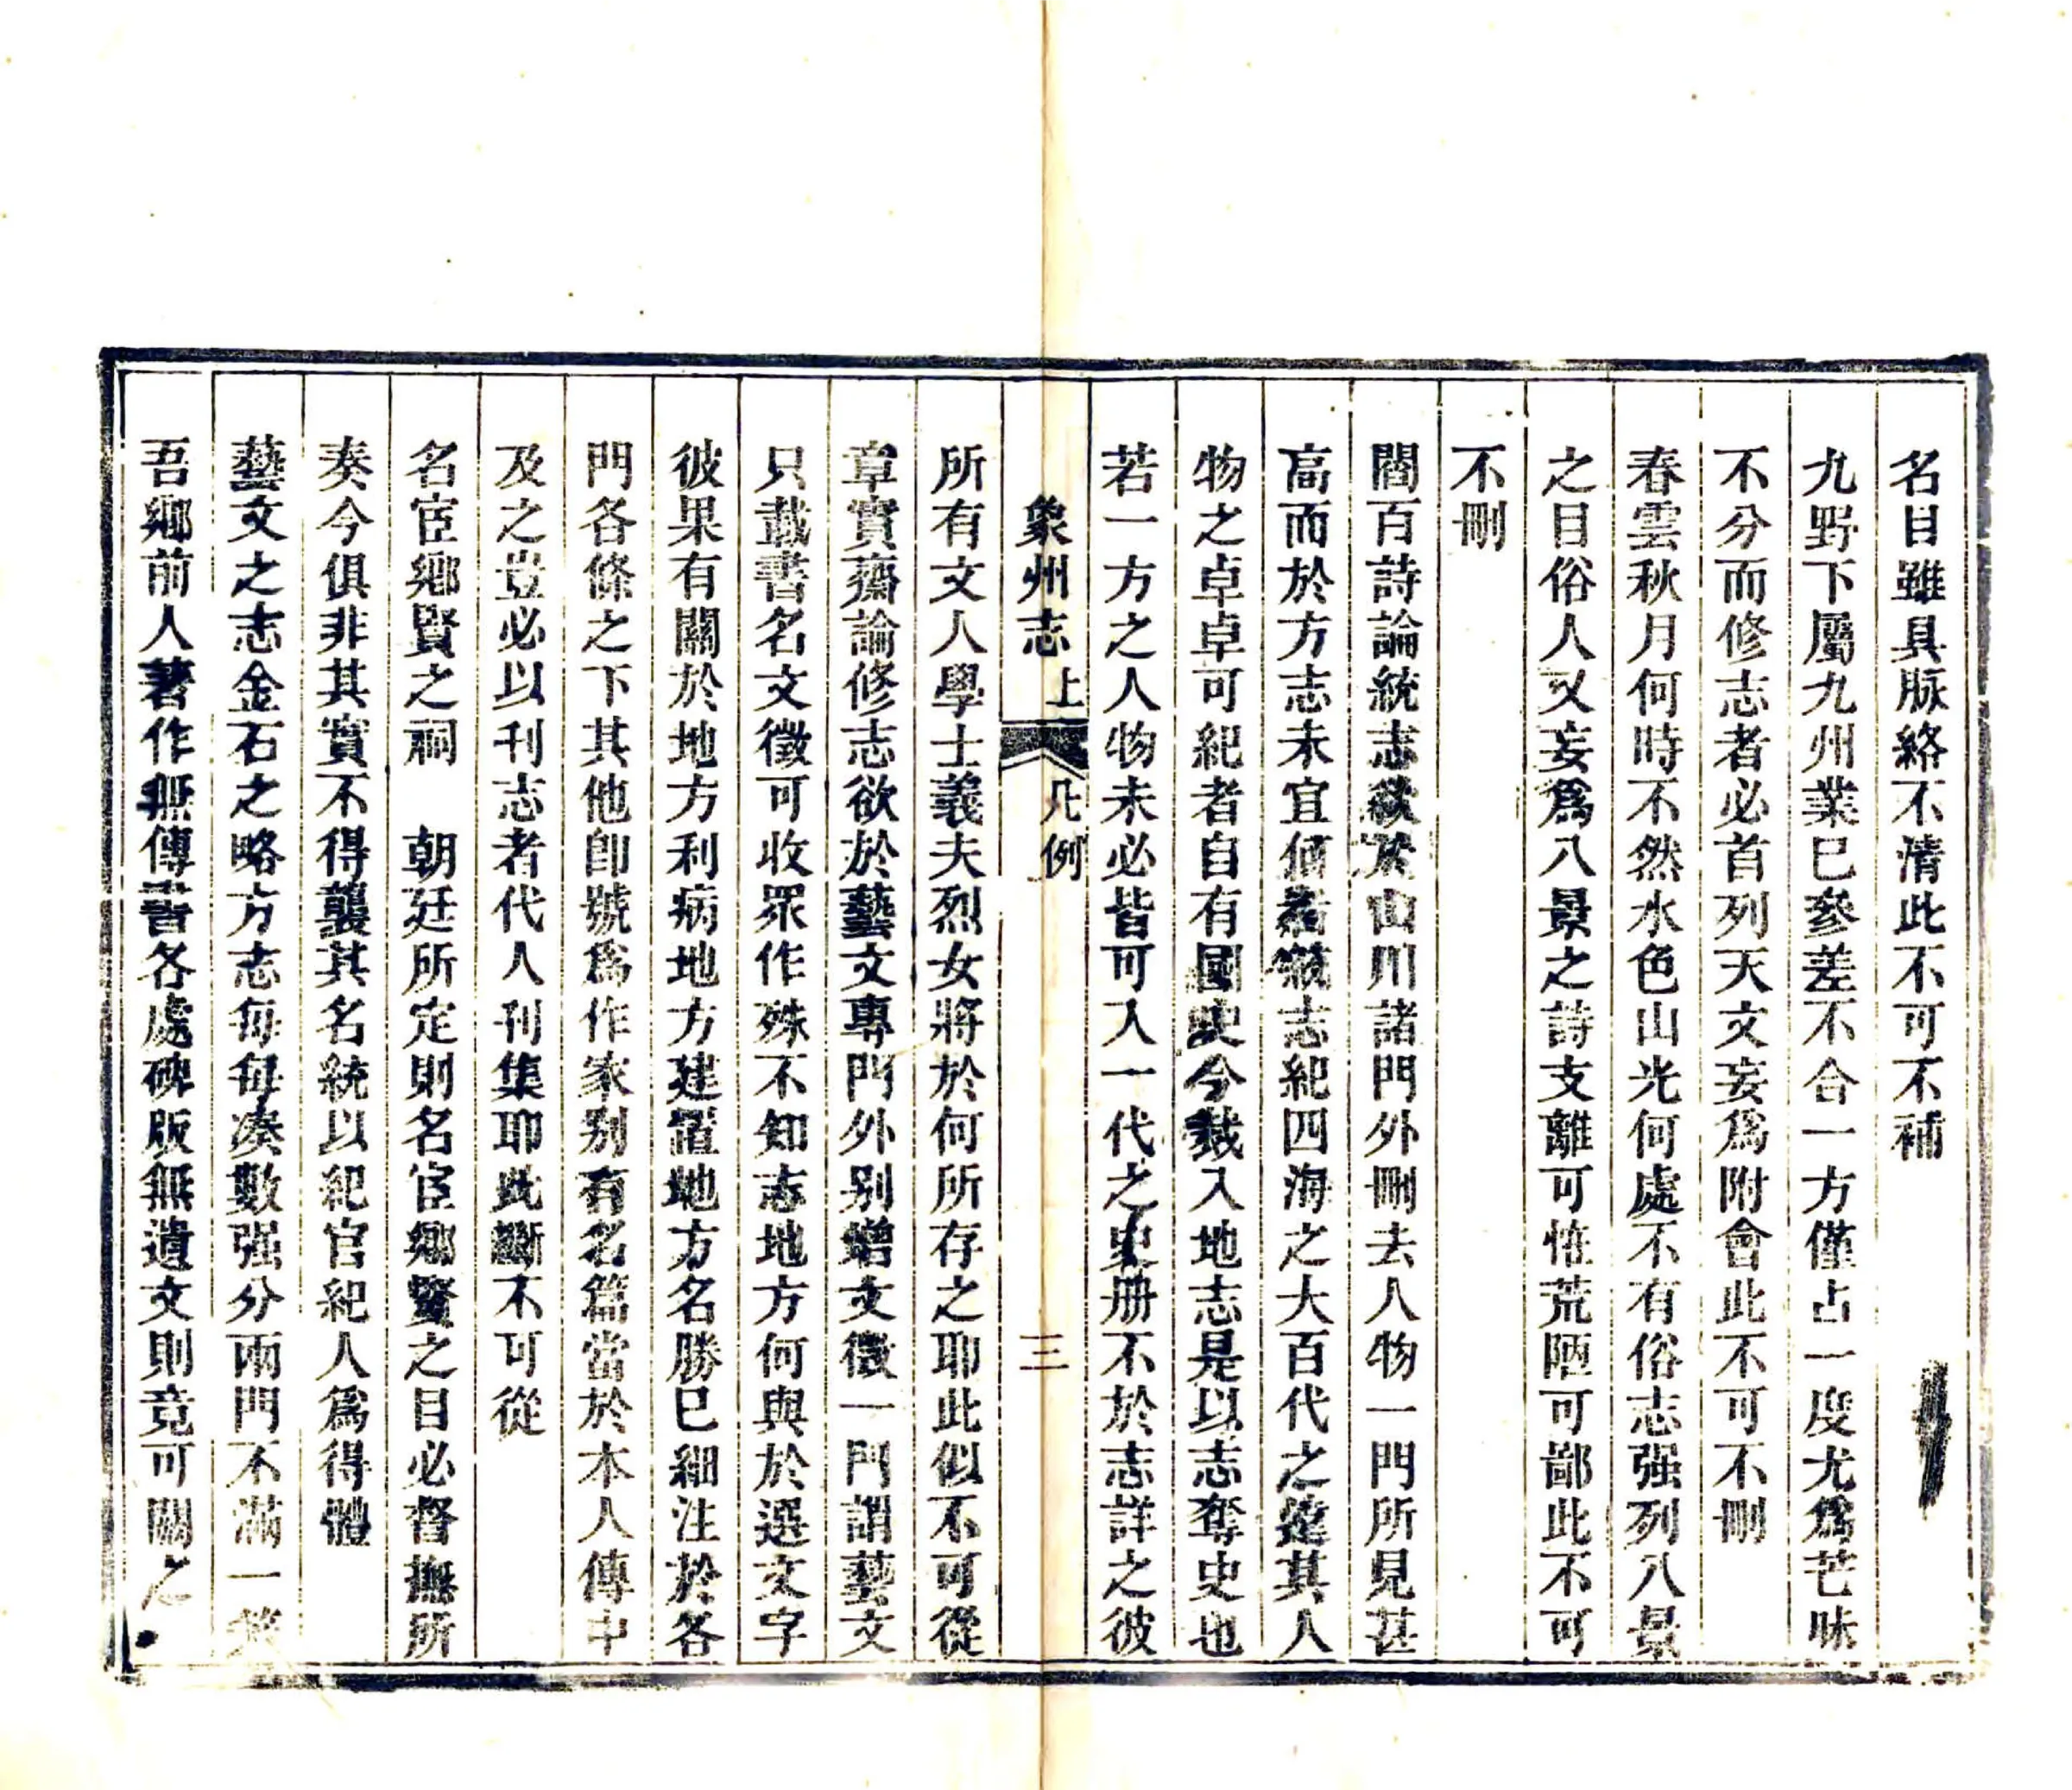 名目雖具脉絡不清此不可不補
九野下屬九州業已參差不合一方僅占一度尤爲芒昧
不分而修志者必首列天文妄爲附會此不可不刪
春雲秋月何時不然水色山光何處不有俗志强列八景
之目俗人又妄爲八景之詩支離可怪荒陋可鄙此不可
不刪
閻百詩論統志欲於山川諸門外刪去人物一門所見甚
高而於方志未宜志紀四海之大百代之遠其人
物之卓卓可紀者自有國史今裁入地志是以志奪史也
若一方之人物未必皆可入一代之史册不於志詳之彼
象州志 上 凡例 三
所有文人學士義夫烈女將於何所存之耶此似不可從
章實齋論修志欲於藝文專門外别增文徵一門謂藝文
只載書名文徵可收眾作殊不知志地方何與於選文字
彼果有關於地方利病地方建置地方名勝已細注於各
門各條之下其他卽號爲作家别有名篇當於本人傳中
及之豈必以刊志者代人刊集耶此斷不可從
名宦鄉賢之祠 朝廷所定則名宦鄉賢之目必督撫所
奏今俱非其實不得襲其名統以紀官紀人爲得體
藝文之志金石之略方志每每湊數强分兩門不滿一
吾鄉前人著作無傳書各處碑版無遺文則竟可闕之